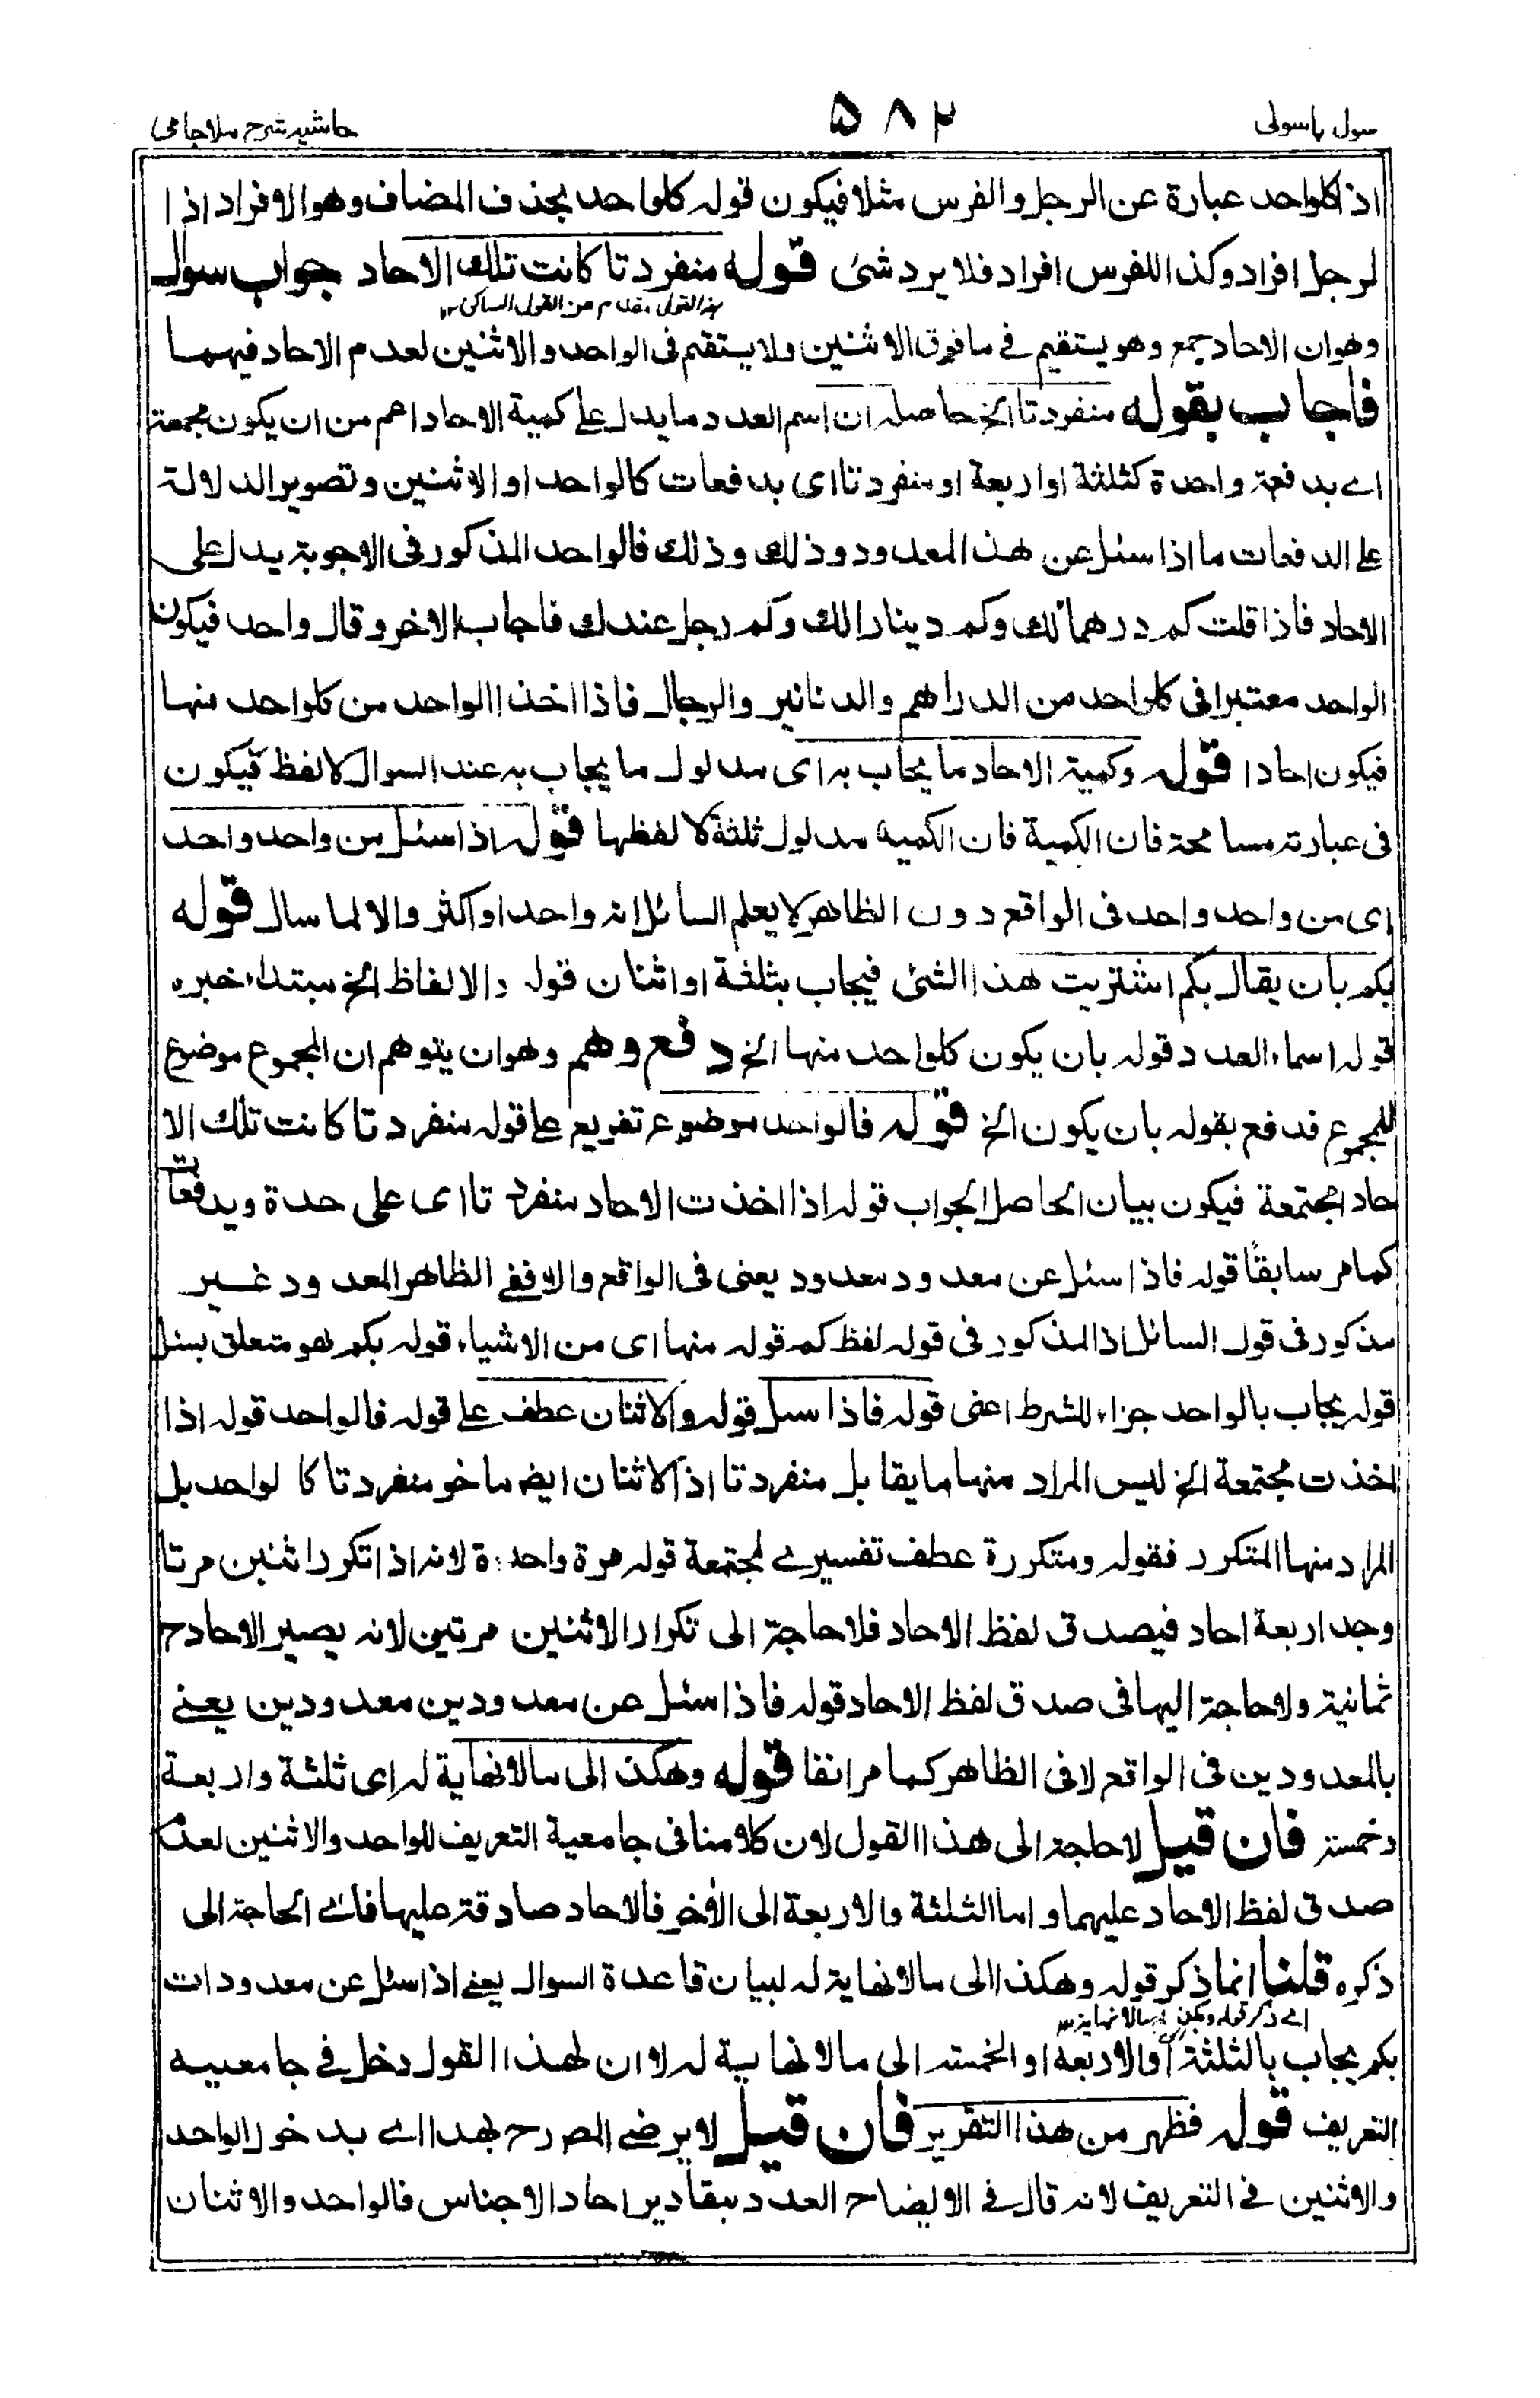 سول باسولی ۵۸۲ حاشیه شرح ملا جامی
اذ کلواحد عبارة عن الرجل والفرس مثلا فیکون قوله کلواحد بحذف المضاف وهو الافراد اذا
لرجل افراد وکذا اللفرس افراد فلا یرد شئ قوله منفردتا کانت تلک الاحاد جواب سوال
هذا القول مقدم من القول السابق ۱۲
وهو ان الاحاد جمع وهو یستقیم فی ما فوق الاثنین ولا یستقیم فی الواحد والاثنین لعدم الاحاد فیهما
فاجاب بقوله منفردتا الخ حاصله ان اسم العدد ما یدل علی کمیة الاحاد اعم من ان یکون مجمعة
اے بدفعة واحدة کثلثة او اربعة او منفردتا ای بدفعات کالواحد او الاثنین وتصویر الدلالة
علی الدفعات ما اذا سئل عن هذا المعدود وذلک وذلک فالواحد المذکور فی الاجوبة یدل علی
الاحاد فاذا قلت کم درهما لک وکم دینارا لک وکم رجل عندک فاجاب الاخر وقال واحد فیکون
الواحد معتبرا فی کلواحد من الدراهم والدنانیر والرجال فاذا اخذ االواحد من کلواحد منها
فیکون احادا قوله وکمیة الاحاد ما یجاب به ای مدلول ما یجاب به عند السوال لا لفظ فیکون
فی عبارته مسامحة فان الکمیة فان الکمیه مدلول ثلثة لا لفظها قوله اذا سئل من واحد واحد
ای من واحد واحد فی الواقع دون الظاهر لا یعلم السائل انه واحد او اکثر والا لما سال قوله
بکم بان یقال بکم اشتریت هذا الشئ فیجاب بثلثة او اثنان قوله والالفاظ الخ مبتداء خبره
قوله اسماء العدد قوله بان یکون کلواحد منها الخ دفع وهم وهو ان یتوهم ان المجموع موضوع
للمجموع فدفع بقوله بان یکون الخ قوله فالواحد موضوع تفریع علی قوله منفردتا کانت تلک الا
حاد مجتمعة فیکون بیان الحاصل الجواب قوله اذا اخذت الاحاد منفردتا ای علی حدة وبدفعات
کما مر سابقًا قوله فاذا سئل عن معدود معدود یعنی فی الواقع والا ففی الظاهر المعدود غیر
مذکور فی قول السائل اذ المذکور فی قوله لفظ کم قوله منها ای من الاشیاء قوله بکم هو متعلق بسئل
قوله یجاب بالواحد جزاء للشرط اعنی قوله فاذا سئل قوله والاثنان عطف علی قوله فالواحد قوله اذا
اخذت مجتمعة الخ لیس المراد منها ما یقابل منفردتا اذ الاثنان ایضا ماخو منفردتا کا لواحد بل
المراد منها المتکرر فقوله ومتکررة عطف تفسیرے لمجتمعة قوله مرة واحدة لانه اذا تکرر اثنین مرتا
وجد اربعة احاد فیصدق لفظ الاحاد فلا حاجة الی تکرار الاثنین مرتین لانه یصیر الاحاد ح
ثمانیة ولا حاجة الیها فی صدق لفظ الاحاد قوله فاذا سئل عن معدودین معدودین یعنے
بالمعدودین فی الواقع لا فی الظاهر کما مر انفا قوله وهکذا الی مالانهایة له ای ثلثة واربعة
وخمسة فان قیل لا حاجة الی هذا القول لان کلامنا فی جامعیة التعریف للواحد والاثنین لعدم
صدق لفظ الاحاد علیهما واما الثلثة والاربعة الی الأخر فالاحاد صادقة علیها فاے الحاجة الی
ذکره قلنا انما ذکر قوله وهکذا الی مالانهایة له لبیان قاعدة السوال یعنے اذا سئل عن معدودات
اے ذکر قوله وهکذا الی مالانهایة ۱۲
بکم یجاب بالثلثة او الاربعة او الخمسة الی مالانهایة له لا ان لهذا القول دخل فے جامعییه
التعریف قوله فظهر من هذا التقریر فان قیل لا یرضے المصرح بهذا اے بدخول الواحد
والاثنین فے التعریف لانه قال فے الایضاح العدد مقادیر احاد الاجناس فالواحد والاثنان